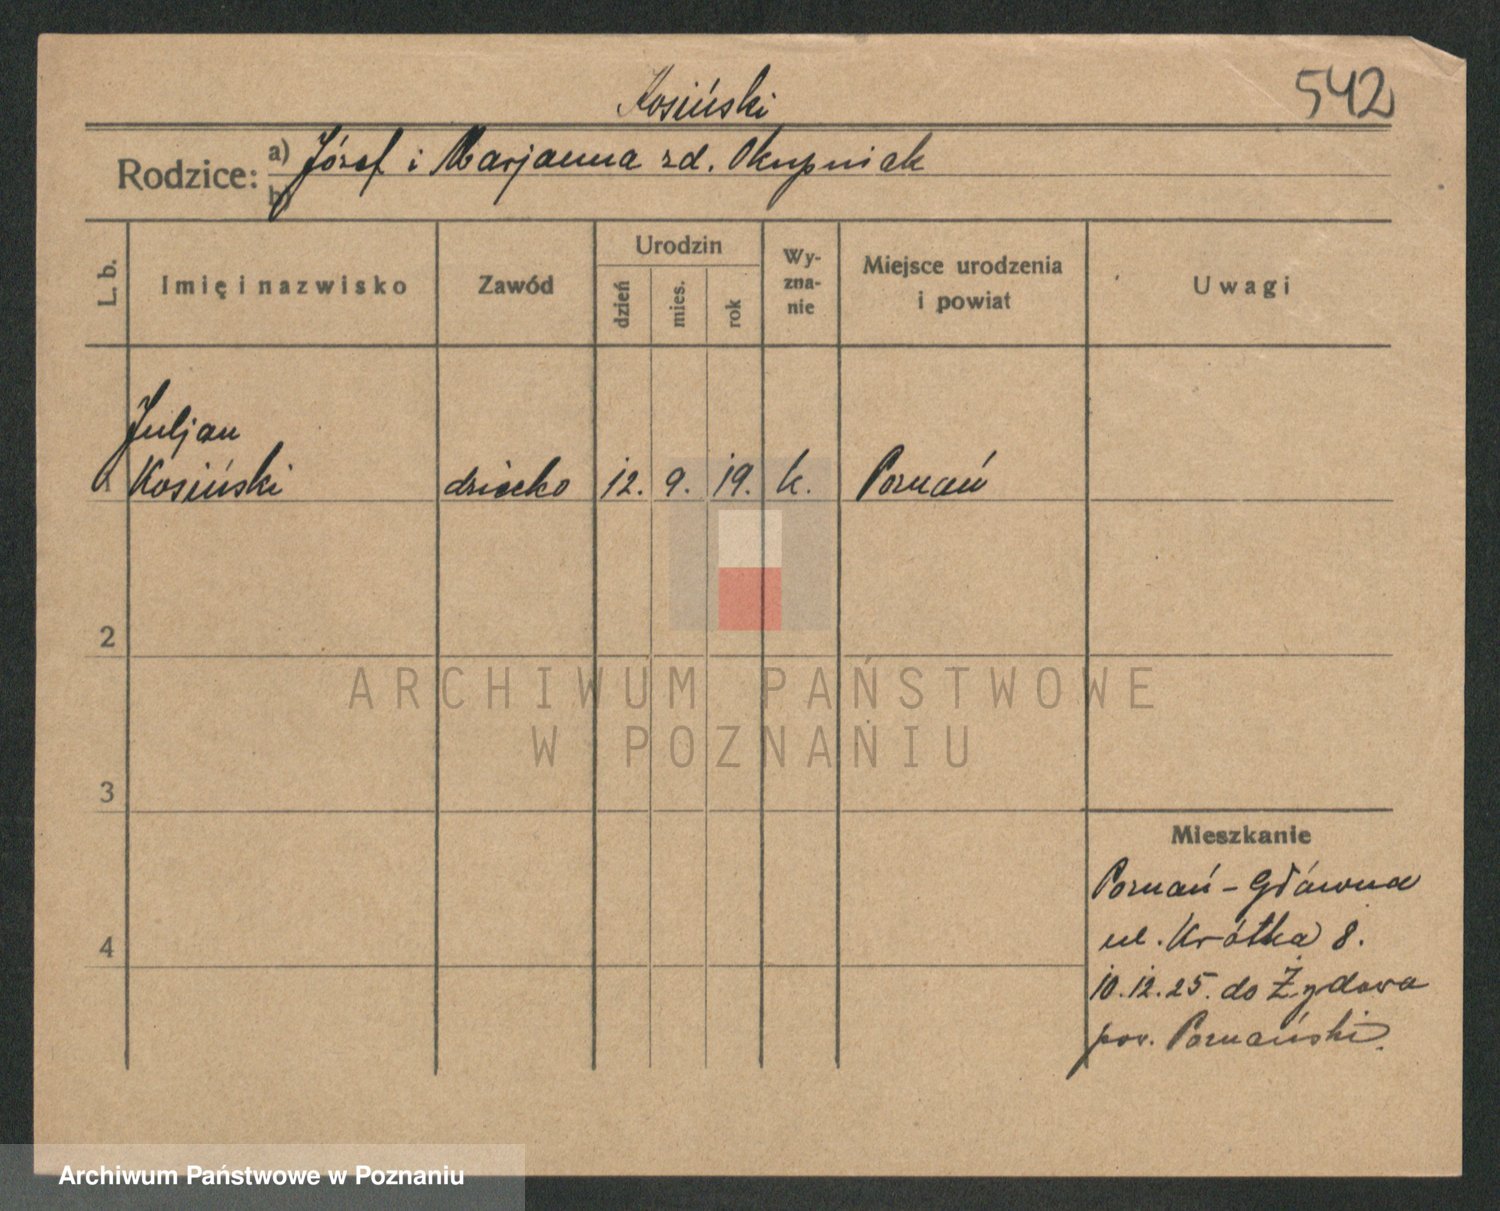 Kosiński
542
Rodzice: a) Józef i Marjanna zd. Okupniak
b)
L. b.
Imię i nazwisko
Zawód
Urodzin
dzień
mies.
rok
Wy-
zna-
nie
Miejsce urodzenia
i powiat
Uwagi
Juljan
1 Kosiński dziecko 12. 9. 19. k. Poznań
2
ARCHIWUM PAŃSTWOWE
W POZNANIU
3
Mieszkanie
Poznań - Główna
ul. Krótka 8.
4
10.12.25. do Żydowa
pow. Poznański.
Archiwum Państwowe w Poznaniu